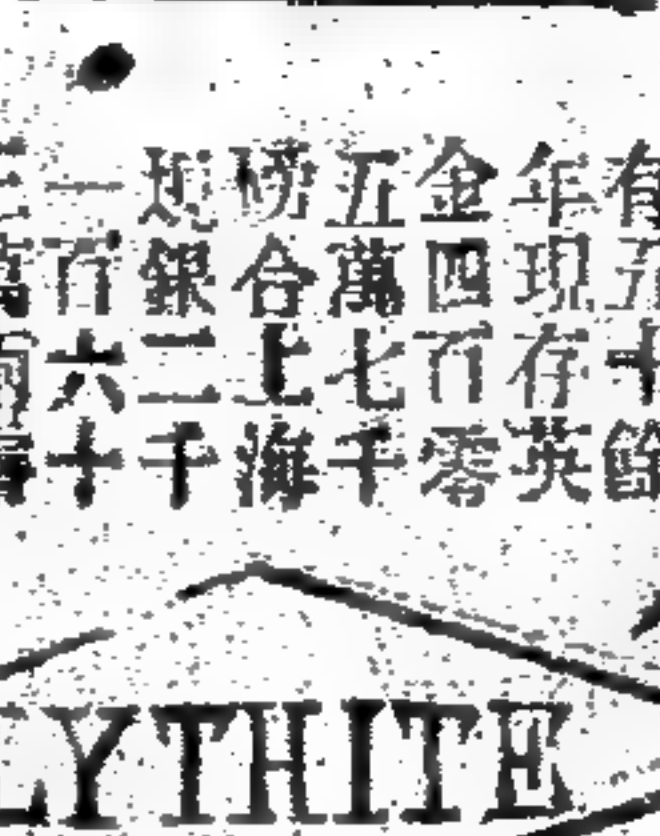 有五十餘
年現存英
金四百零
五萬七千
磅合上海
規銀二千
一百六十
萬兩
LYTHITE